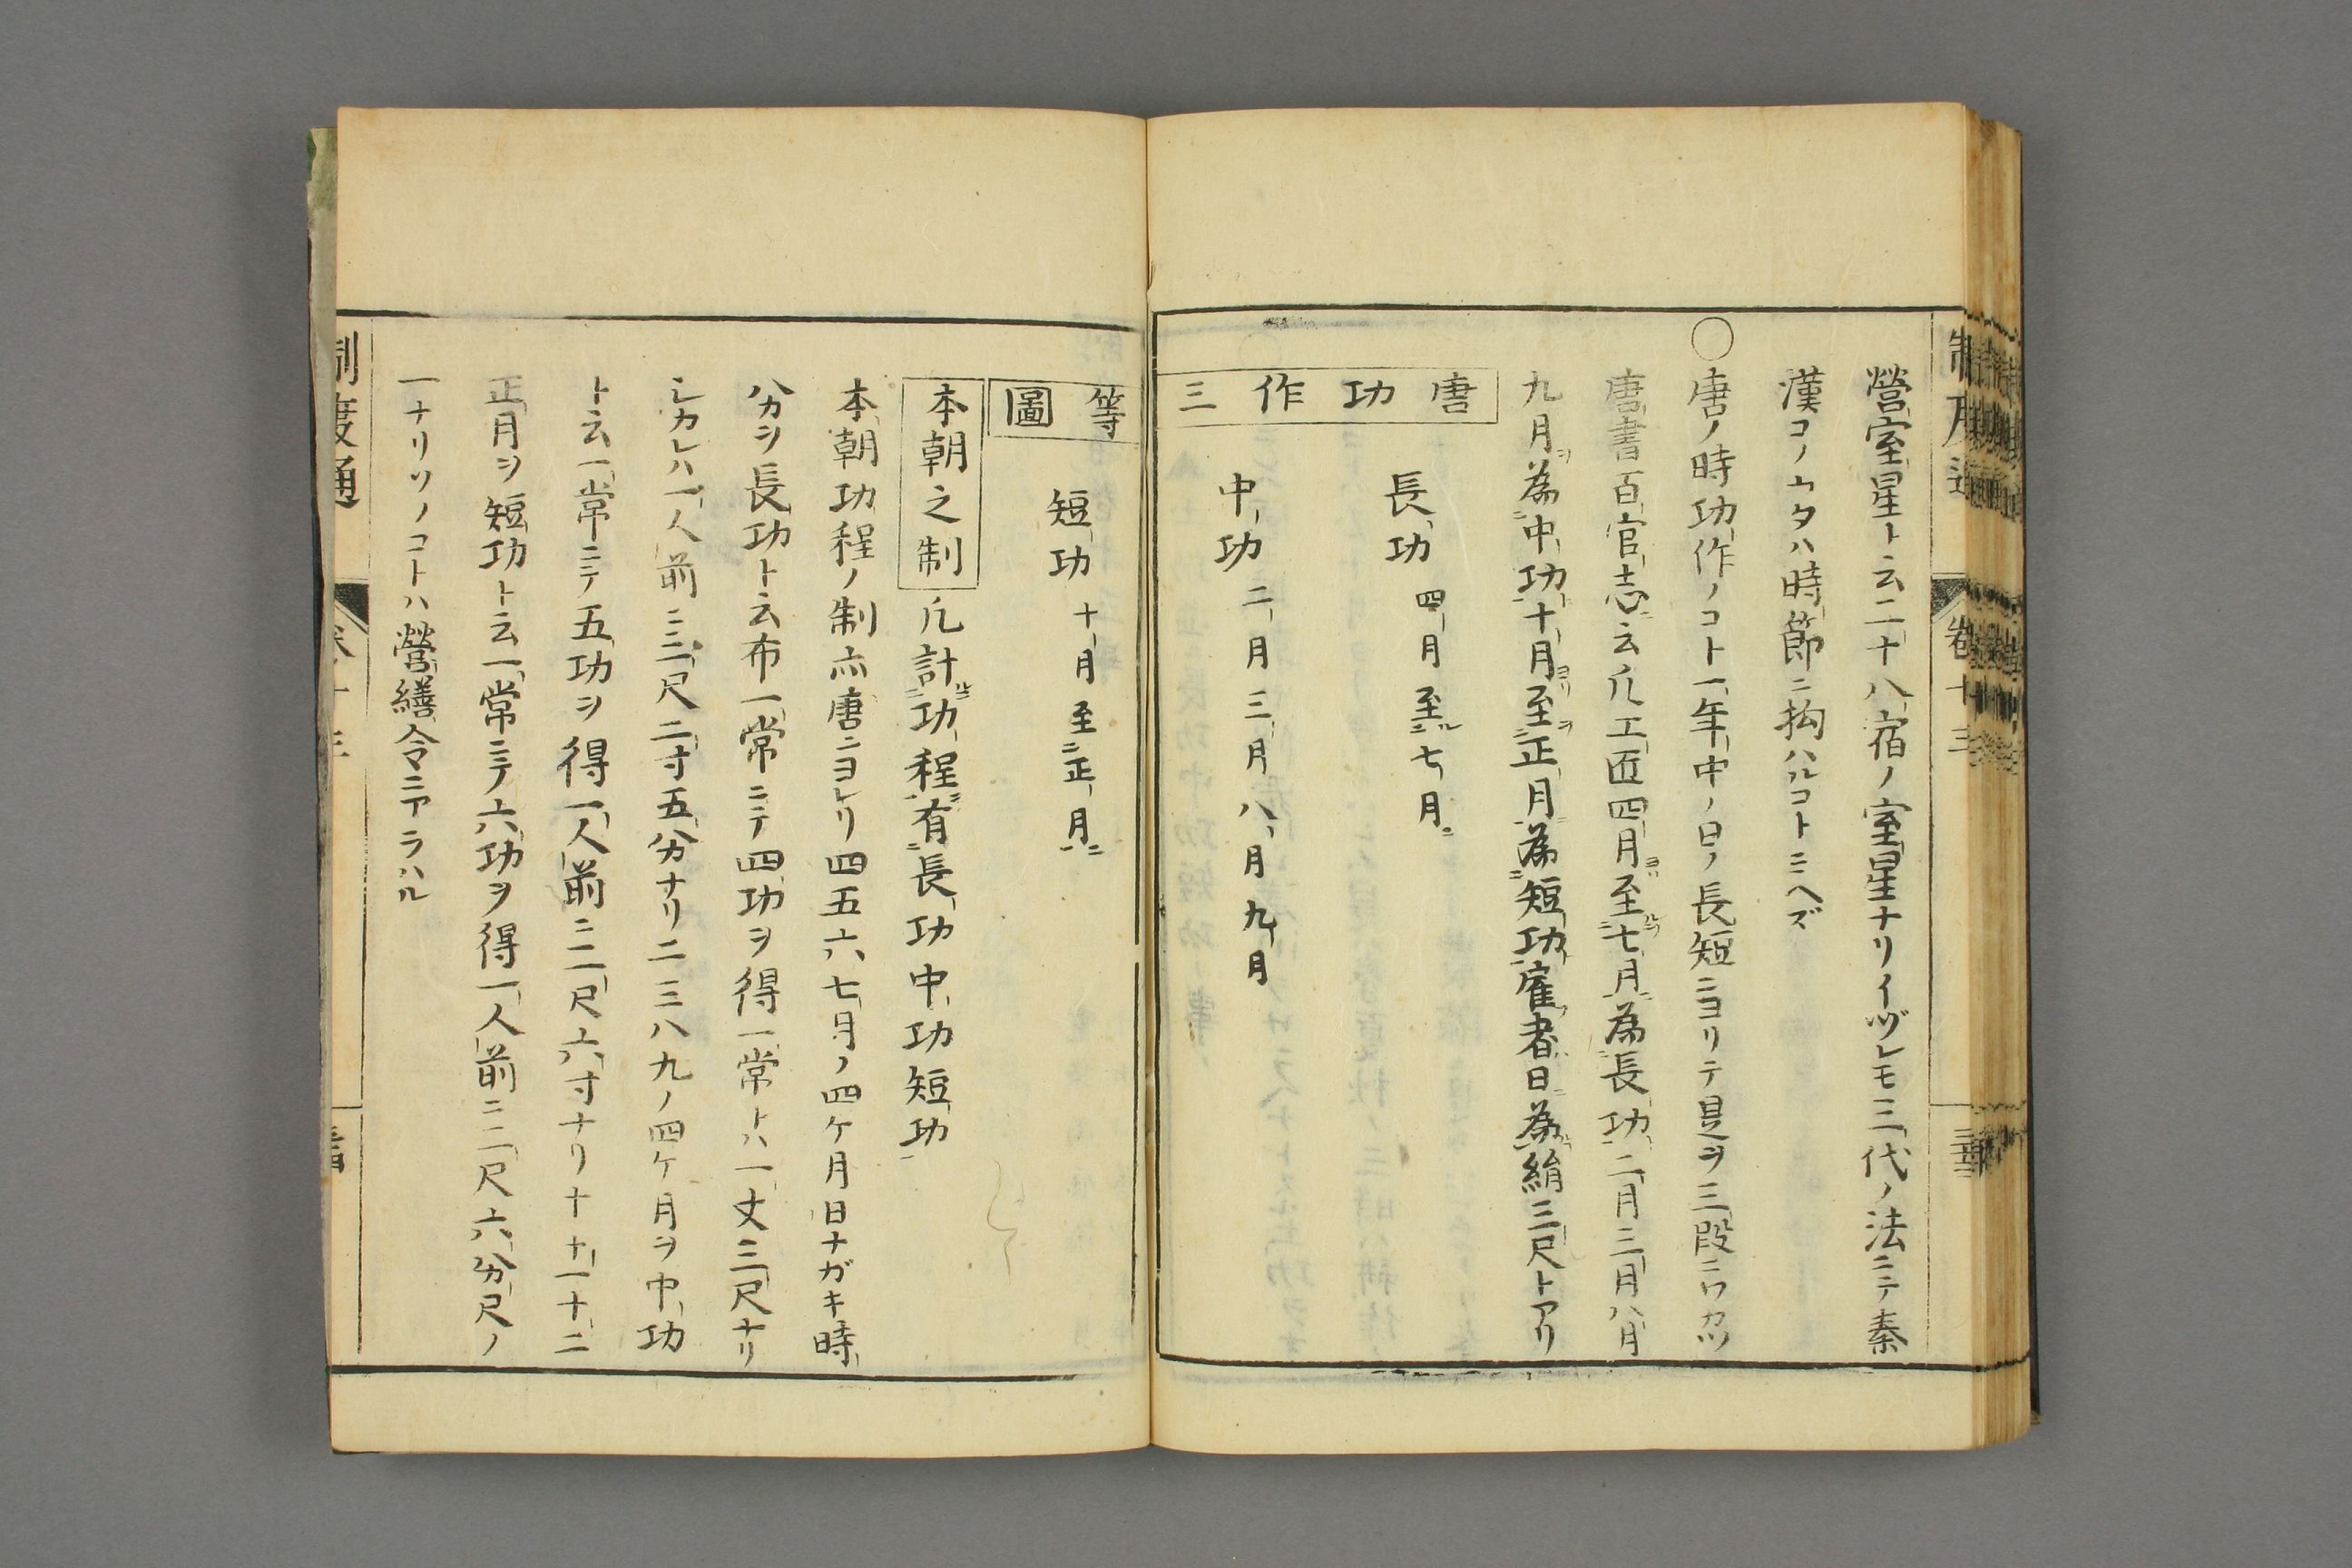 營室星ト云二十八宿ノ室星ナリイヅレモ三代ノ法ニテ秦
漢コノカタハ時節ニ拘ハルコトミヘズ
○唐ノ時功作ノコト一年中ノ日ノ長短ニヨリテ是ヲ三段ニワカツ
唐書百官志云凡工匠四月ヨリ至ルヲ七月為長功二月三月八月
九月ヲ為中功十月ヨリ至ヲ正月為短功雇者日為絹三尺トアリ
唐功作三
長功 四月至ル七月
中功 二月三月八月九月
等圖
短功 十月至正月
本朝之制 凡計功程有長功中功短功
本朝功程ノ制亦唐ニヨレリ四五六七月ノ四ケ月日ナガキ時
分ヲ長功ト云布一常ニテ四功ヲ得一常トハ一丈三尺ナリ
シカレハ一人前ニ三尺二寸五分ナリ二三八九ノ四ケ月ヲ中功
ト云一常ニテ五功ヲ得一人前ニ二尺六寸ナリ十十一十二
正月ヲ短功ト云一常ニテ六功ヲ得一人前ニ二尺六分尺ノ
一ナリソノコトハ營繕令ニアラハル
制度通
卷十三